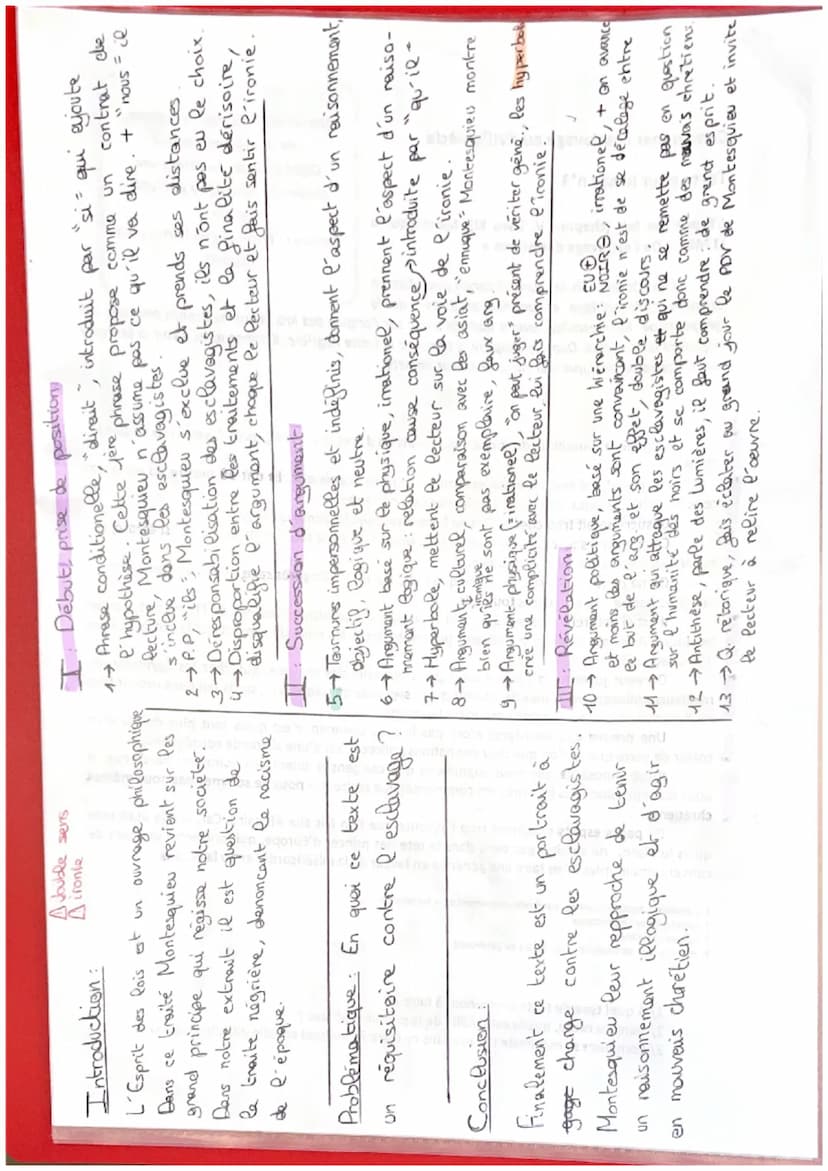 Introduction :
⚠ double sens
⚠ ironie
L'Esprit des lois est un ouvrage philosophique
Dans ce traité Montesquieu revient sur les
grand principe qui régisse notre société.
Dans notre extrait il est question de
la traite négrière, dénoncant le racisme
de l'époque.
Problématique : En quoi ce texte est
un réquisitoire contre l'esclavage ?
Conclusion :
Finalement ce texte est un portrait à
charge contre les esclavagistes.
Montesquieu leur rapproche de tenir
un raisonnement illogique et d'agir
en mauvais chrétien.
I : Début, prise de position
1 → Phrase conditionelle, "dirait", introduit par "si" qui ajoute
l'hypothèse. Cette 1ère phrase propose comme un contrat de
lecture, Montesquieu n'assume pas ce qu'il va dire. + "nous" = il
s'inclue dans les esclavagistes.
2 → P.P. "ils", Montesquieu s'exclue et prends ses distances.
3 → Déresponsabilisation des esclavagistes, ils n'ont pas eu le choix.
4 → Disproportion entre les traitements et la finalité dérisoire,
disqualifie l'argument, choque le lecteur et fais sentir l'ironie.
II : Succession d'argument
5 → Tournures impersonnelles et indéfinis, donnent l'aspect d'un raisonnement,
objectif, logique et neutre.
6 → Argument basé sur le physique, irrationel, prennent l'aspect d'un raiso-
nnement logique, relation cause conséquence → introduite par "qu'il"
7 → Hyperbole, mettent le lecteur sur la voie de l'ironie.
8 → Argument culturel, comparaison avec les asiat, "ennuque" Montesquieu montre
ironique
bien qu'ils ne sont pas exemplaire, faux arg
9 → Argument physique (irationel), "on peut juger" présent de vériter géné, les hyperbole
crée une complicité avec le lecteur, lui fais comprendre l'ironie.
III : Révélation
10 → Argument politique basé sur une hiérarchie : EU ⊕ NOIR ⊖, irrationel, + on avance
et moins les arguments sont convaincant, l'ironie n'est de se décalage entre
le but de l'arg et son effet, double discours.
11 → Argument qui attaque les esclavagistes qui ne se remette pas en question
sur l'humanité des noirs et se comporte donc comme des mauvais chrétiens.
12 → Antithèse, parle des Lumières, il faut comprendre de grand esprit.
13 → Q. rétorique, fais éclater au grand jour le PDV de Montesquieu et invite
le lecteur à relire l'œuvre.